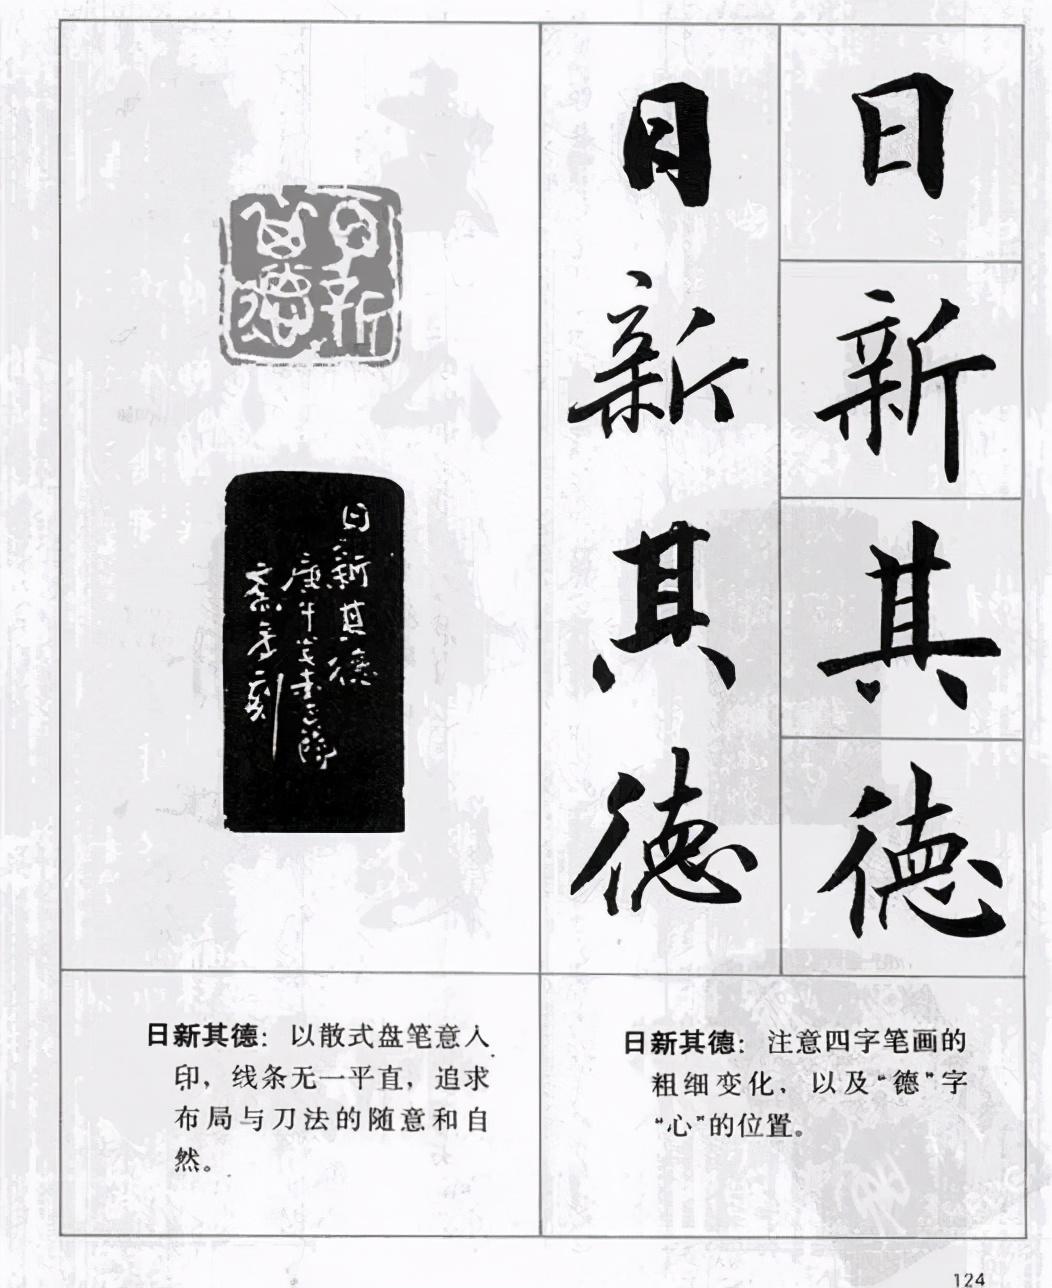 日新
其德
日新其德
庚午
刻
日新其德
日
新
其
德
日新其德：以散式盘笔意入
印，线条无一平直，追求
布局与刀法的随意和自
然。
日新其德：注意四字笔画的
粗细变化，以及“德”字
“心”的位置。
124